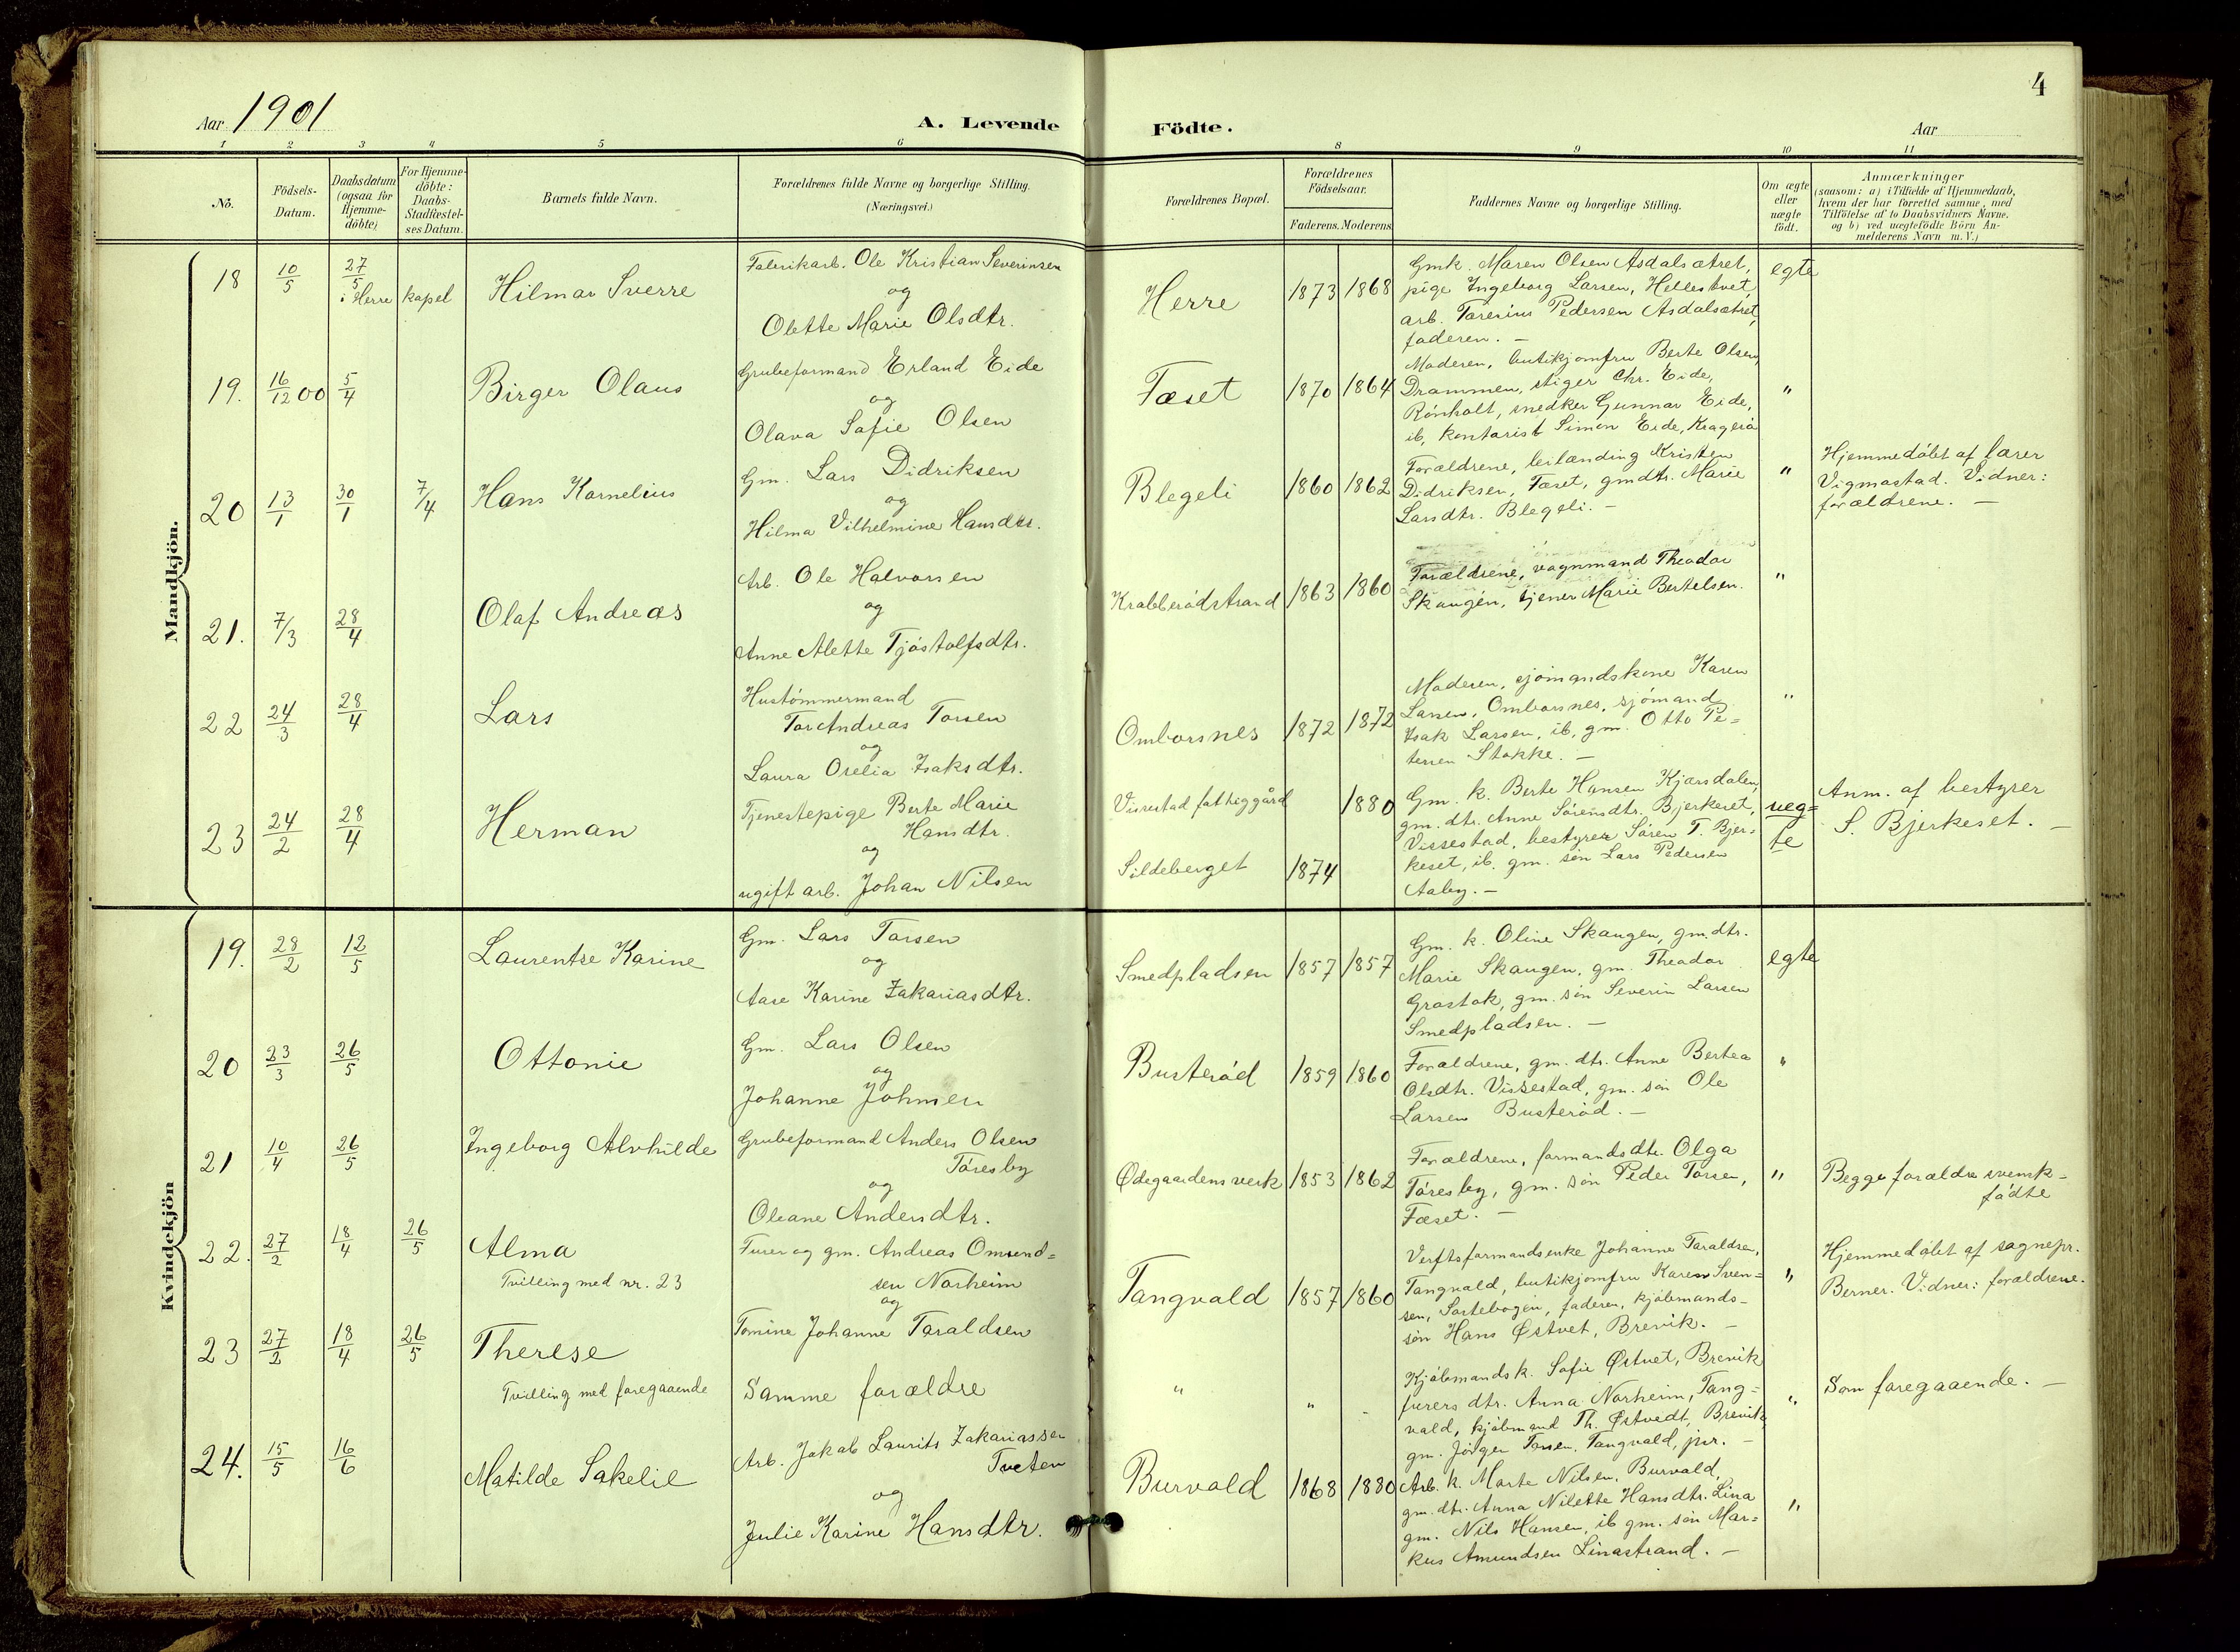 4
Aar 1901
A. Levende Födte.
Aar
1 2 3 4 5 6 8 9 10 11
No.
Födsels-
Datum.
Daabsdatum
(ogsaa for
Hjemme-
döbte)
For Hjemme-
döbte:
Daabs-
Stadfæstel-
ses Datum.
Barnets fulde Navn.
Forældrenes fulde Navne og borgerlige Stilling.
(Næringsvei.)
Forældrenes Bopæl.
Forældrenes
Födselsaar.
Faderens. Moderens.
Faddernes Navne og borgerlige Stilling.
Om ægte
eller
uægte
födt.
Anmærkninger
(saasom: a) i Tilfælde af Hjemmedaab,
hvem der har forrettet samme, med
Tilföielse af to Daabsvidners Navne.
og b) ved uægtefödte Börn An-
melderens Navn m. V.)
Mandkjön.
18
10/5
27/5
i Herre kapel
Hilmar Sverre
Fabrikarb. Ole Kristian Severinsen
og
Olette Marie Olsdtr.
Herre
1873 1868
Gmk. Maren Olsen Asdalsætret,
pige Ingeborg Larsen, Hellestvet
arb. Tarerius Pedersen Asdalsætret,
faderen. –
egte
19.
16/12 00
5/4
Birger Olaus
Grubeformand Erland Eide
og
Olava Sofie Olsen
Fæset
1870 1864
Moderen, butikjomfru Berte Olsen,
Drammen, stiger Chr. Eide,
Rönholt, snedker Gunnar Eide,
ib, kontorist Simon Eide, Kragerö
"
20
13/1
30/1
7/4
Hans Kornelius
Gm. Lars Didriksen
og
Hilma Vilhelmine Hansdtr.
Blegeli
1860 1862
Forældrene, leilænding Kristen
Didriksen, Fæset, gmdtr. Marie
Larsdtr. Blegeli. –
"
Hjemmedöbt af lærer
Vigmostad. Vidner:
forældrene. –
21.
7/3
28/4
Olaf Andreas
Arb. Ole Halvorsen
og
Anne Alette Tjöstolfsdtr.
Krabberödstrand
1863 1860
Forældrene, vognmand Theodor
Skaugen, tjener Marie Bertelsen.
"
22
24/3
28/4
Lars
Hustömmermand
Tor Andreas Torsen
og
Laura Orelia Isaksdtr.
Omborsnes
1872 1872
Moderen, sjömandskone Karen
Larsen, Omborsnes, sjömand
Isak Larsen, ib, gm. Otto Pe=
tersen Stokke. –
"
23
24/2
28/4
Herman
Tjenestepige Berte Marie
Hansdtr.
og
ugift arb. Johan Nilsen
Vissestad fattiggård
Sildeberget
1880
1874
Gm. k. Berte Hansen Kjærsdalen,
gm. dtr. Anne Sörensdtr. Bjerkeset,
Vissestad, bestyrer Sören T. Bjer=
keset, ib. gm. sön Lars Pedersen
Aaby. –
ueg=
te
Anm. af bestyrer
S. Bjerkeset. –
Kvindekjön
19.
28/2
12/5
Laurentse Karine
Gm. Lars Torsen
og
Aase Karine Zakariasdtr.
Smedpladsen
1857 1857
Gm. k. Oline Skaugen, gm. dtr.
Marie Skaugen, gm. Theodor
Grastok, gm. sön Severin Larsen
Smedpladsen. –
egte
20
23/3
26/5
Ottonie
Gm. Lars Olsen
og
Johanne Johnsen
Busteröd
1859 1860
Forældrene, gm. dtr. Anne Bertea
Olsdtr. Vissestad, gm. sön Ole
Larsen Busteröd. –
"
21
10/4
26/5
Ingeborg Alvhilde
Grubeformand Anders Olsen
Töresby
og
Oleane Andersdtr.
Ødegaardens verk
1853 1862
Forældrene, formandsdtr. Olga
Töresby, gm. sön Peder Torsen,
Fæset. –
"
Begge forældre svensk-
födte
22.
27/2
18/4
26/5
Alma
Tvilling med nr. 23
Furer og gm. Andreas Omund=
sen Norheim
og
Tomine Johanne Taraldsen
Tangvald
1857 1860
Verftsformandsenke Johanne Taraldsen,
Tangvald, butikjomfru Karen Sven=
sen, Sortebogen, faderen, kjöbmands-
sön Hans Østvet, Brevik. –
"
Hjemmedöbt af sognepr.
Berner. Vidner: forældrene.
23
27/2
18/4
26/5
Therese
Tvilling med foregaaende
Samme forældre
"
"
Kjöbmandsk. Sofie Østvet, Brevik
furers dtr. Anna Norheim, Tang=
vald, kjöbmand Th. Østvedt, Brevik,
gm. Jörgen Torsen, Tangvald, jnr. –
"
Som foregaaende. –
24.
15/5
16/6
Matilde Sakelie
Arb. Jakob Laurits Zakariassen
Tveten
og
Julie Karine Hansdtr.
Burvald
1868 1880
Arb. k. Marte Nilsen, Burvald,
gm. dtr. Anna Nilette Hansdtr. Lina
gm. Nils Hansen, ib gm. sön Mar=
kus Amundsen Linastrand. –
"